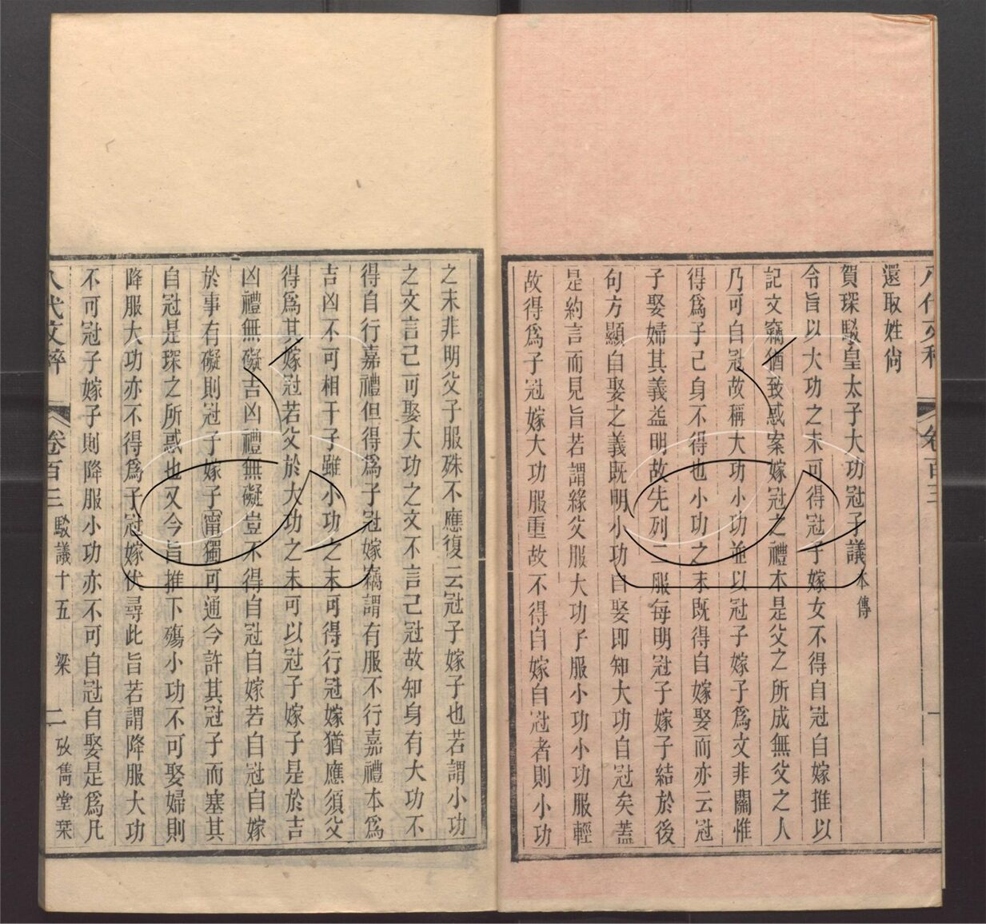 還取姓尙
賀琛駁皇太子大功冠子議本傳
令旨以大功之末可得冠子嫁女不得自冠自嫁推以
記文竊猶致惑案嫁冠之禮本是父之所成無父之人
乃可自冠故稱大功小功並以冠子嫁子爲文非關惟
得爲子己身不得也小功之末既得自嫁娶而亦云冠
子娶婦其義益明故先列二服每明冠子嫁子結於後
句方顯自娶之義既明小功自娶即知大功自冠矣蓋
是約言而見旨若謂緣父服大功子服小功小功服輕
故得爲子冠嫁大功服重故不得自嫁自冠者則小功
之末非明父子服殊不應復云冠子嫁子也若謂小功
之文言己可娶大功之文不言己冠故知身有大功不
得自行嘉禮但得爲子冠嫁竊謂有服不行嘉禮本爲
吉凶不可相干子雖小功之末可得行冠嫁猶應須父
得爲其嫁冠若父於大功之末可以冠子嫁子是於吉
凶禮無礙吉凶禮無礙豈不得自冠自嫁若自冠自嫁
於事有礙則冠子嫁子甯獨可通今許其冠子而塞其
自冠是琛之所惑也又令旨推下殤小功不可娶婦則
降服大功亦不得爲子冠嫁伏尋此旨若謂降服大功
不可冠子嫁子則降服小功亦不可自冠自娶是爲凡
八代文粹 卷百三 駁議十五 梁 二 攷雋堂栞